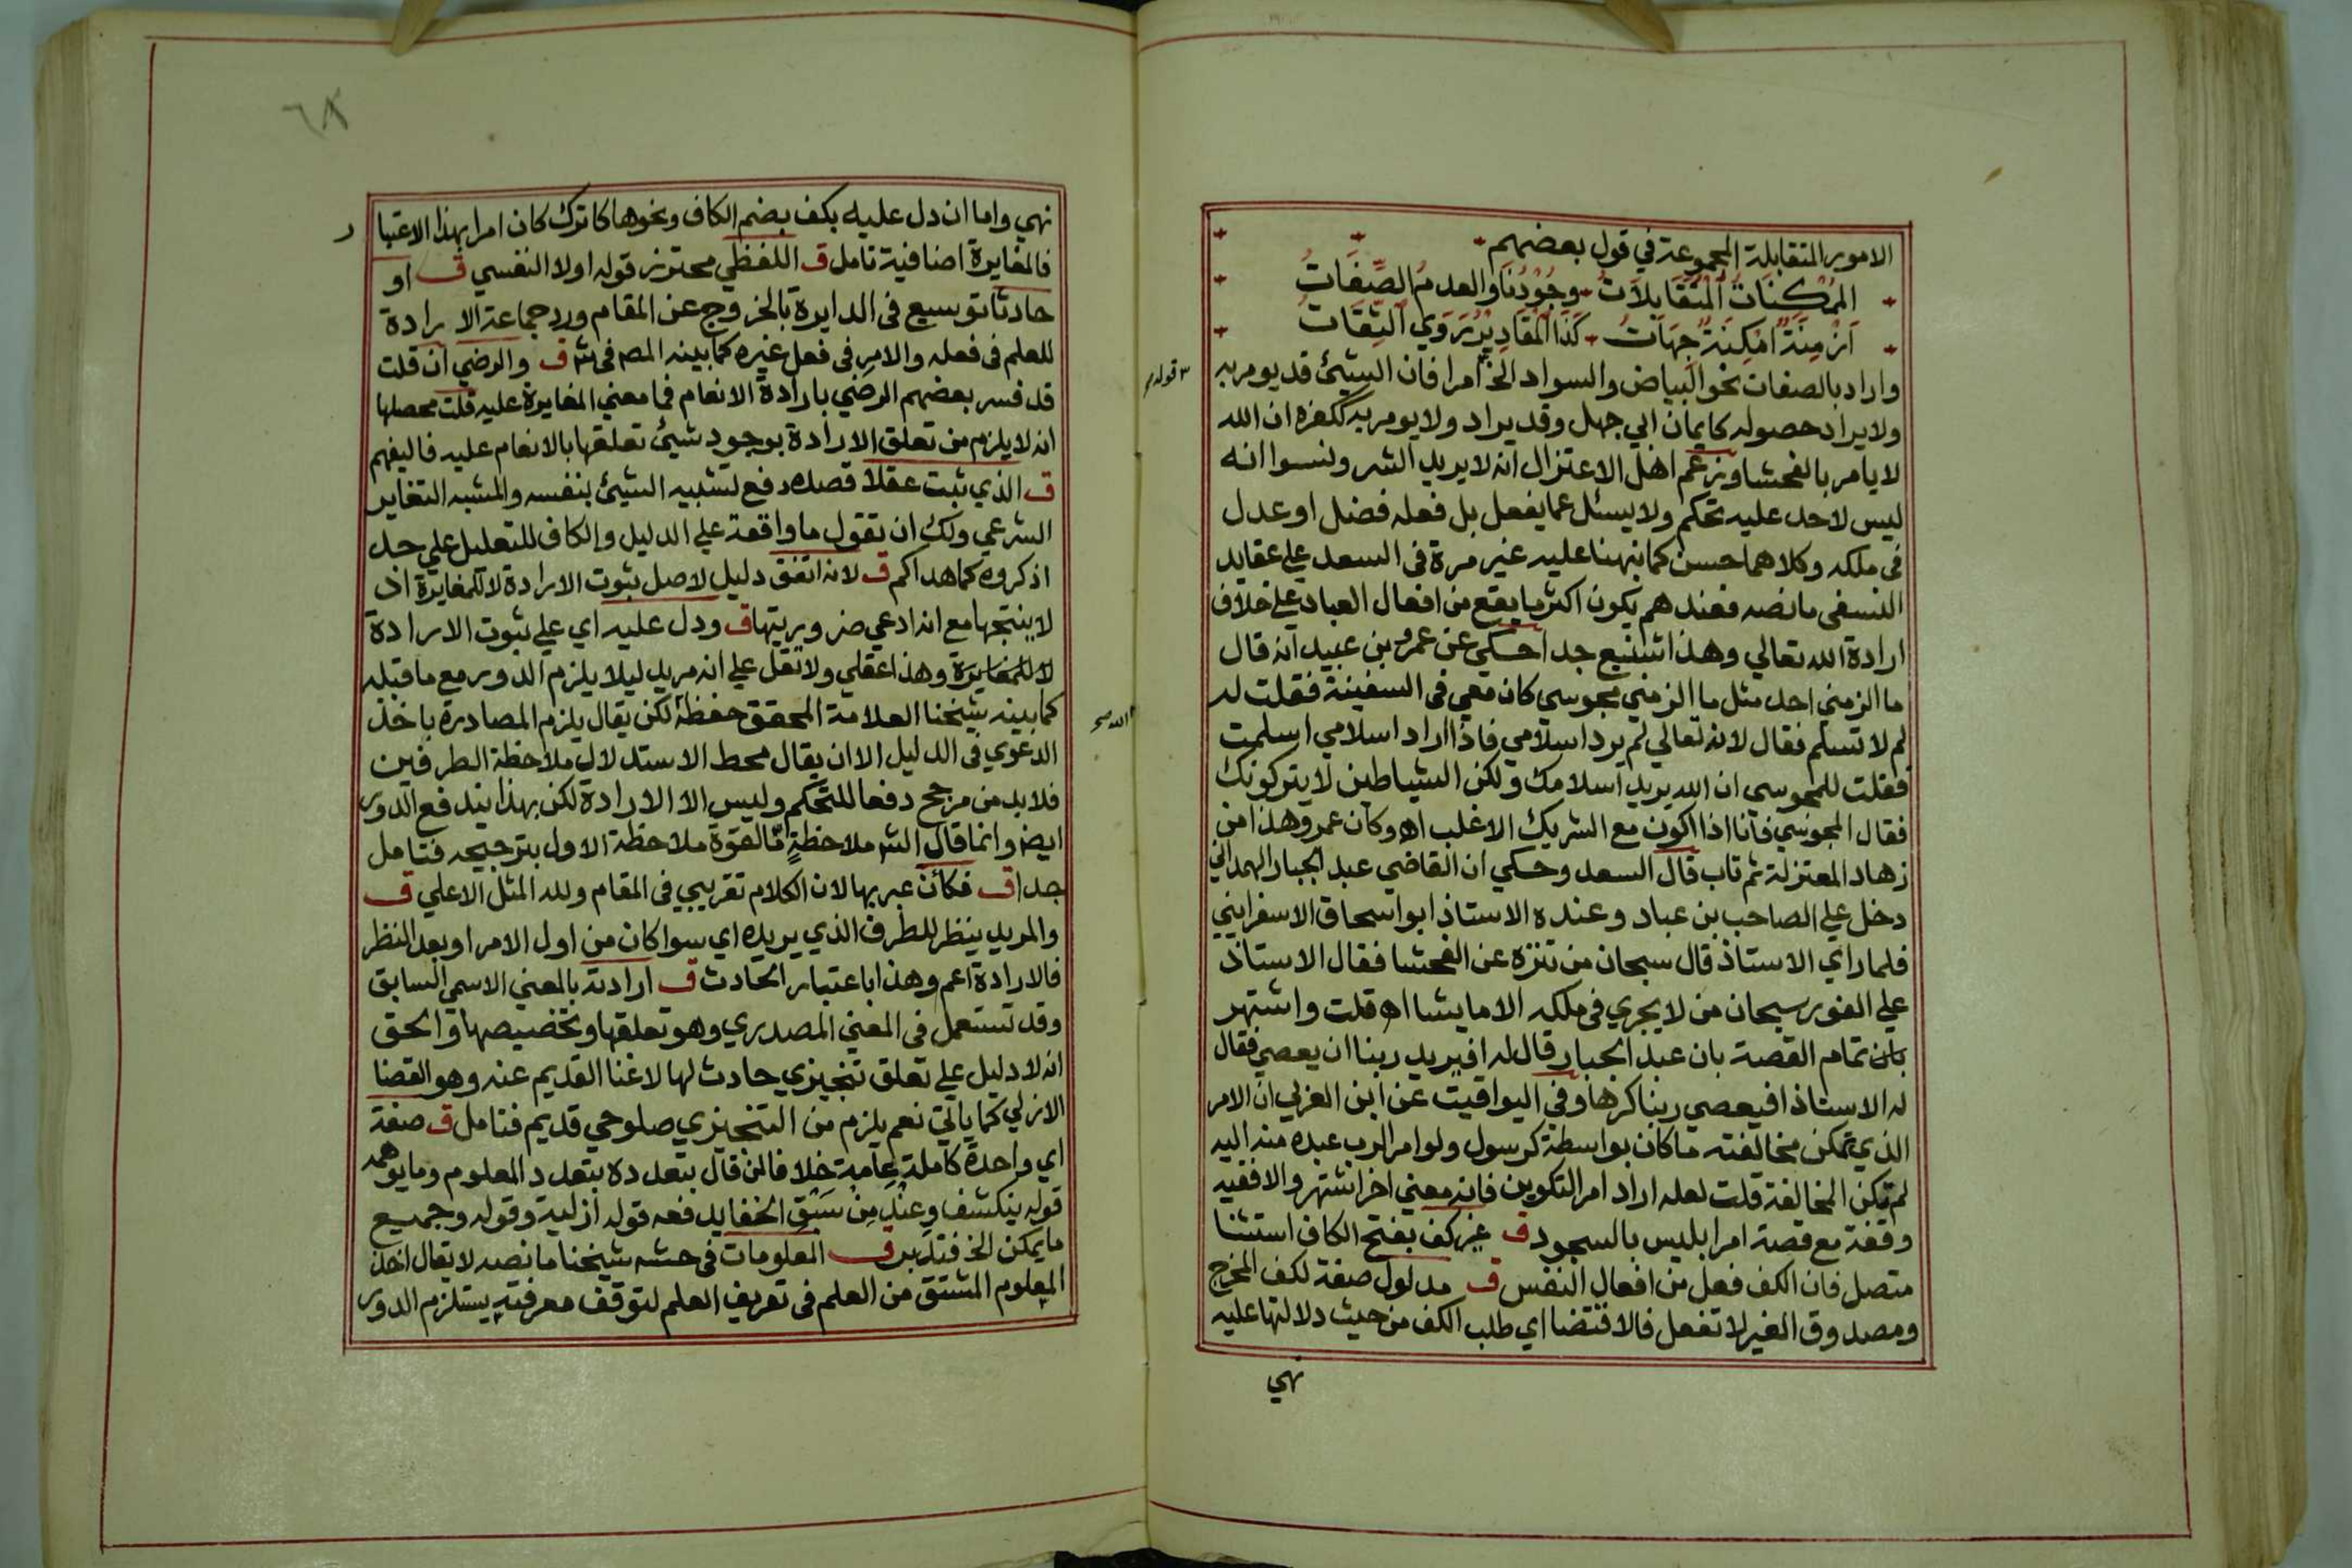 الامور المتقابلة المجموعة في قول بعضهم
الْمُمْكِنَاتُ الْمُتَقَابِلَاتُ وُجُوْدُنَا والعدمُ الصِّفَاتُ
اَزْمِنَةٌ اَمْكِنَةٌ جِهَاتُ كَذَا الْمَقَادِيْرُ رَوَي الثِّقَاتُ
واراد بالصفات نحو البياض والسواد الخ امرا فان الشيئ قد يومر به
٣ قوله م
ولا يراد حصوله كايمان ابي جهل وقد يراد ولا يومر به ككفره ان الله
لا يامر بالفحشا وزعم اهل الاعتزال انه لا يريد الشر ونسوا انه
ليس لاحد عليه تحكم ولا يسئل عما يفعل بل فعله فضل او عدل
في ملكه وكلاهما حسن كما نبهنا عليه غير مرة في السعد علي عقايد
النسفي ما نصه فعندهم يكون اكثر ما يقع من افعال العباد علي خلاف
ارادة الله تعالي وهذا شنيع جدا حكي عن عمرو بن عبيد انه قال
ما الزمني احد مثل ما الزمني مجوسي كان معي في السفينة فقلت له
لم لا تسلم فقال لانه تعالي لم يرد اسلامي فاذا اراد اسلامي اسلمت
فقلت للمجوسي ان الله يريد اسلامك ولكن الشياطين لا يتركونك
فقال المجوسي فانا اذا اكون مع الشريك الاغلب اه وكان عمرو هذا من
زهاد المعتزلة ثم تاب قال السعد وحكي ان القاضي عبد الجبار الهمداني
دخل علي الصاحب بن عباد وعنده الاستاذ ابو اسحاق الاسفرايني
فلما راي الاستاذ قال سبحان من تنزه عن الفحشا فقال الاستاذ
علي الفور سبحان من لا يجري في ملكه الا ما يشا اه قلت واشتهر
بان تمام القصة بان عبد الجبار قال له افيريد ربنا ان يعصي فقال
له الاستاذ افيعصي ربنا كرها وفي اليواقيت عن ابن العربي ان الامر
الذي تمكن مخالفته ما كان بواسطة كرسول ولو امر الرب عبده منه اليه
لم تكن المخالفة قلت لعله اراد امر التكوين فانه معني اخر اشتهر والا ففيه
وقفة مع قصة امر ابليس بالسجود ق غير كف بفتح الكاف استثنا
متصل فان الكف فعل من افعال النفس ق مدلول صفة لكف المخرج
ومصدوق الغير لا تفعل فالاقتضا اي طلب الكف من حيث دلالتها عليه
نهي
٦٨
نهي واما ان دل عليه بكف بضم الكاف ونحوها كاترك كان امرا بهذا الاعتبا
ر
فالمغايرة اضافية تامل ق اللفظي محترز قوله اولا النفسي ق او
حادثا توسيع في الدايرة بالخروج عن المقام ورد جماعة الارادة
للعلم في فعله والامر في فعل غيره كما بينه المصـ في شـ ق والرضي ان قلت
قد فسر بعضهم الرضي بارادة الانعام فما معني المغايرة عليه قلت محصلها
انه لا يلزم من تعلق الارادة بوجود شيئ تعلقها بالانعام عليه فاليفهم
ق الذي ثبت عقلا قصده دفع تشبيه الشيئ بنفسه والمشبه التغاير
الشرعي ولك ان تقول ما واقعة علي الدليل والكاف للتعليل علي حد
اذكروه كما هداكم ق لانه اتفق دليل لاصل ثبوت الارادة لا للمغايرة اذ
لا ينتجها مع انه ادعي ضروريتها ق ودل عليه اي علي ثبوت الارادة
لا للمغايرة وهذا عقلي ولا تقل علي انه مريد ليلا يلزم الدور مع ما قبله
كما بينه شيخنا العلامة المحقق حفظه لكن يقال يلزم المصادرة باخذ
الله صح
الدعوي في الدليل الا ان يقال محط الاستدلال ملاحظة الطرفين
فلا بد من مرجح دفعا للتحكم وليس الا الارادة لكن بهذا يندفع الدور
ايضا وانما قال الشـ ملاحظةٍ مّا لقوة ملاحظة الاول بترجيحه فتامل
جدا ق فكأن عبر بها لان الكلام تقريبي في المقام ولله المثل الاعلي ق
والمريد ينظر للطرف الذي يريده اي سوا كان من اول الامر او بعد النظر
فالارادة اعم وهذا باعتبار الحادث ق ارادته بالمعني الاسمي السابق
وقد تستعمل في المعني المصدري وهو تعلقها وتخصيصها والحق
انه لا دليل علي تعلق تنجيزي حادث لها لاغنا القديم عنه وهو القضا
الازلي كما ياتي نعم يلزم من التنجيزي صلوحي قديم فتامل ق صفة
اي واحدة كاملة عامة خلافا لمن قال بتعدده بتعدد المعلوم وما يوهمه
قوله ينكشف وعند مِنْ سَبْقِ الخفا يدفعه قوله ازلية وقوله وجميع
ما يمكن الخ فتدبر ق المعلومات في حشـ شيخنا ما نصه لا يقال اخذ
المعلوم المشتق من العلم في تعريف العلم لتوقف معرفته يستلزم الدور